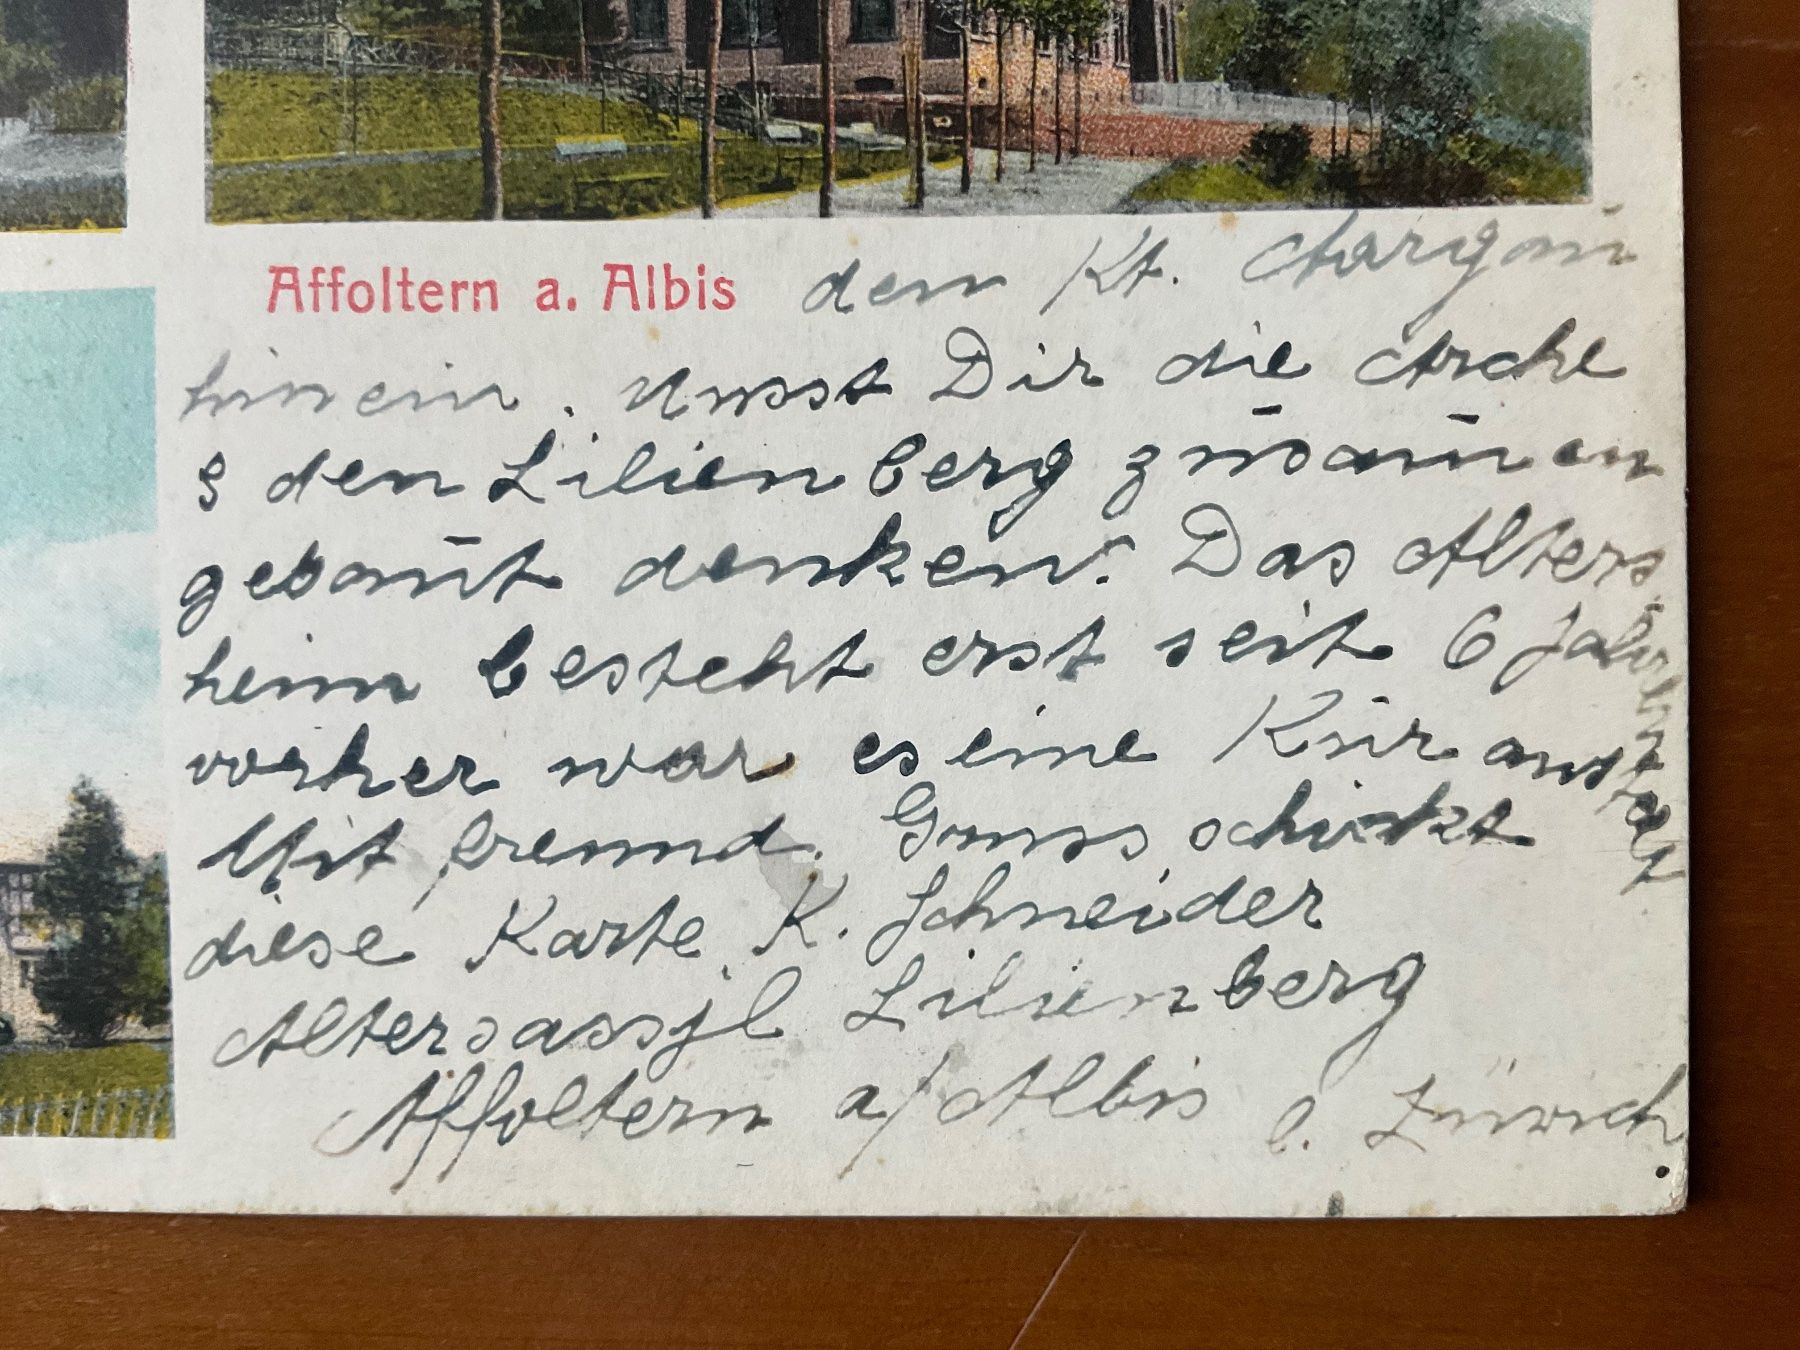 Affoltern a. Albis den Kt. Aargau
hinein. Musst Dir die Arche
& den Lilienberg zusam̄en
gebaut denken. Das Alters
heim besteht erst seit 6 Jahren
vorher war es eine Kur anstalt
Mit freund. Gruss schickt
diese Karte K. Schneider
Altersassyl Lilienberg
Affoltern a/Albis b. Zürich.